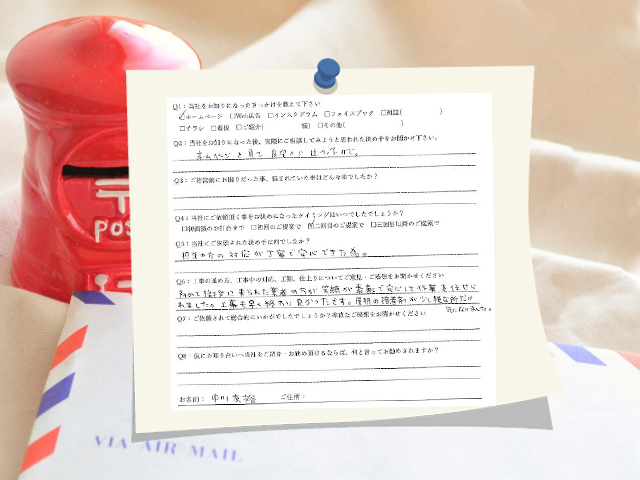 Q1：当社をお知りになったきっかけを教えて下さい
☑ホームページ □Web広告 □インスタグラム □フェイスブック □雑誌( )
□チラシ □看板 □ご紹介( 様) □その他( )
Q2：当社をお知りになった後、実際にご相談してみようと思われた決め手をお聞かせ下さい。
ホームページを見て
Q3：ご相談前にお困りだった事、悩まれていた事はどんな事でしたか？
Q4：当社にご依頼頂く事をお決めになったタイミングはいつでしたでしょうか？
□初回面談のお打合せで □初回のご提案で ☑二回目のご提案で □三回目以降のご提案で
Q5：当社にご依頼された決め手は何でしたか？
担当の方の対応が丁寧で安心できた為。
Q6：工事の進め方、工事中の対応、工期、仕上りについてご意見・ご感想をお聞かせください
業者の方が笑顔が素敵で安心して作業を任せら
れました。工事も早く終わり良かったです。屋根の接着剤が少し雑な所だけ
気になりました。
Q7：ご依頼されて総合的にいかがでしたでしょうか？率直なご感想をお聞かせください
Q8：仮にお知り合いへ当社をご紹介・お勧め頂けるならば、何と言ってお勧めされますか？
お名前： 中川 ご住所：
POS
VIA AIR MAIL